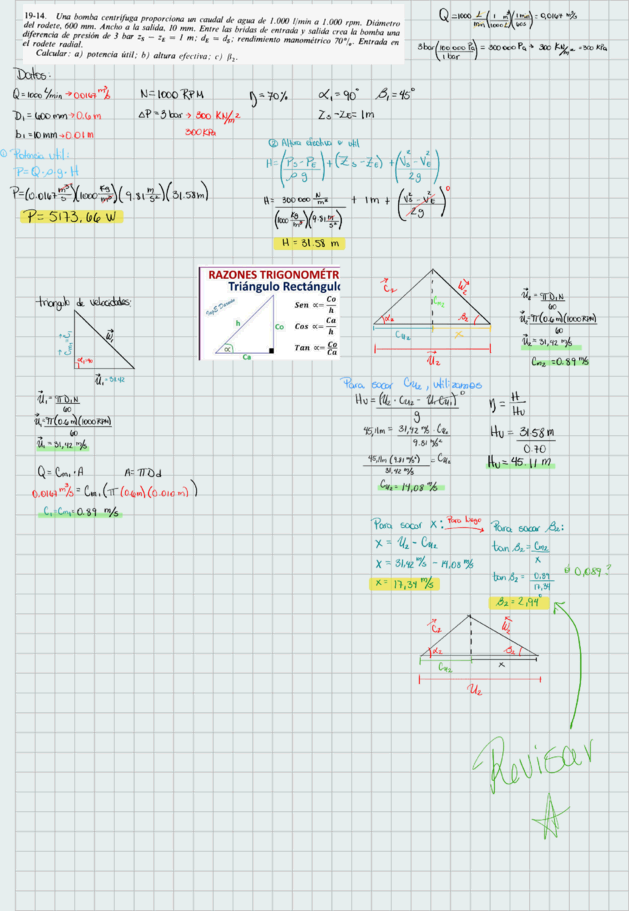 19-14. Una bomba centrífuga proporciona un caudal de agua de 1.000 l/min a 1.000 rpm. Diámetro
del rodete, 600 mm. Ancho a la salida, 10 mm. Entre las bridas de entrada y salida crea la bomba una
diferencia de presión de 3 bar zs − zE = 1 m; dE = ds; rendimiento manométrico 70%. Entrada en
el rodete radial.
Calcular: a) potencia útil; b) altura efectiva; c) β2.
Q = 1000 L/min (1 m³/1000 L)(1 min/60s) = 0,0167 m³/s
3 bar (100 000 Pa/1 bar) = 300 000 Pa → 300 KN/m² → 300 KPa
Datos:
Q = 1000 L/min → 0.0167 m³/s
N = 1000 RPM
η = 70%
α1 = 90°
β1 = 45°
D1 = 600 mm → 0.6 m
ΔP = 3 bar → 300 KN/m²
300 KPa
Zs − ZE = 1m
b1 = 10 mm → 0.01 m
Potencia útil:
P = Q·ρ·g·H
P = (0.0167 m³/s)(1000 Kg/m³)(9.81 m/s²)(31.58m)
P = 5173,66 W
② Altura efectiva o útil
H = (Ps − PE / ρg) + (Zs − ZE) + (Vs² − VE² / 2g)
H = 300 000 N/m² / (1000 Kg/m³)(9.81 m/s²) + 1m + (Vs² − VE² / 2g) 0
H = 31.58 m
triangulo de velocidades:
C1 = Cm1
W1
U1 = 31.42
U1 = πD1N / 60
U1 = π(0.6m)(1000RPM) / 60
U1 = 31,42 m/s
Q = Cm1 · A
A = πDd
0.0167 m³/s = Cm1 (π(0.6m)(0.010m))
C1 = Cm1 = 0.89 m/s
RAZONES TRIGONOMÉTR
Triángulo Rectángulo
Sen ∝= Co/h
Cos ∝= Ca/h
Tan ∝= Co/Ca
h
Co
α
Ca
C2
W2
Cm2
α2
β2
Cu2
x
U2
U2 = πD2N / 60
U2 = π(0.6m)(1000RPM) / 60
U2 = 31,42 m/s
Cm2 = 0.89 m/s
Para sacar Cu2, utilizamos
Hu = (U2 · Cu2 − U1 Cu1) 0 / g
45,11m = 31,42 m/s · Cu2 / 9.81 m/s²
45,11m (9.81 m/s²) / 31,42 m/s = Cu2
Cu2 = 14,08 m/s
η = H / Hu
Hu = 31.58 m / 0.70
Hu = 45.11 m
Para sacar x: Para luego
x = U2 − Cu2
x = 31,42 m/s − 14,08 m/s
x = 17,34 m/s
Para sacar β2:
tan β2 = Cm2 / x
tan β2 = 0,89 / 17,34
ó 0,089?
β2 = 2,94°
C2
W2
α2
β2
Cu2
x
U2
Revisar